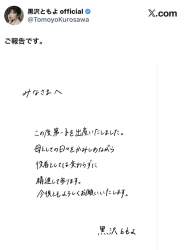 黒沢ともよ official
@TomoyoKurosawa
X.com
ご報告です。
みなさまへ
この度第一子を出産いたしました。
母としての日々をかみしめながら
役者としても変わらずに
精進して参ります。
今後ともよろしくお願いいたします。
黒沢ともよ